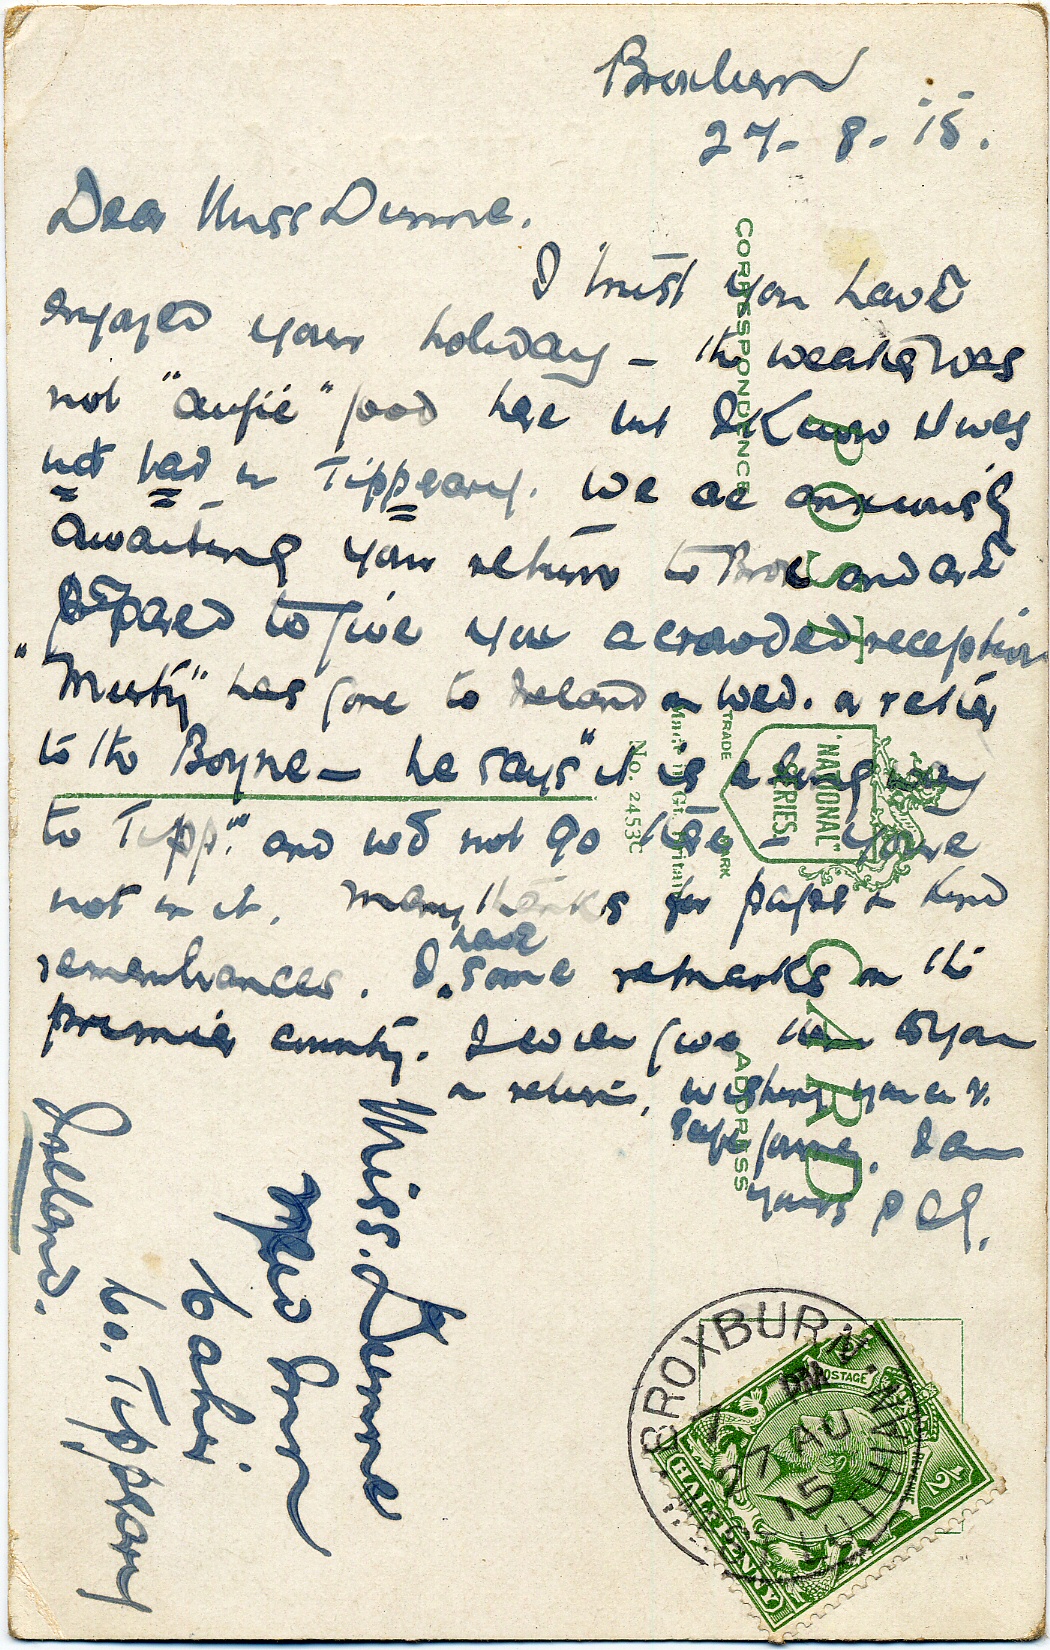 Broxburn
27- 8- 15.
Dear Miss Dunne.
I trust you have
enjoyed your holiday – the weather was
not "aufie" good here but I know it was
not bad in Tippeary. We are anxiously
awaiting your return to Brox and are
prepared to give you a crowded reception
"Murty" has gone to Ireland on Wed. a
to the Boyne – he says "it is a long way
to Tipp" and wd not go there – you're
not in it. Many thanks for paper & kind
remembrances. I have some remarks on the
premier county. I even give them to you
on return, wishing you a v.
safe journey. I am
yours
Miss. Dunne
New Inn
Cahir
Co. Tippeary
Ireland.
CORRESPONDENCE
POST CARD
ADDRESS
TRADE MARK
"NATIONAL" SERIES
Made in Gt. Britain
No. 2453C
BROXBURN
27 AU
15
POSTAGE
REVENUE
HALFPENNY